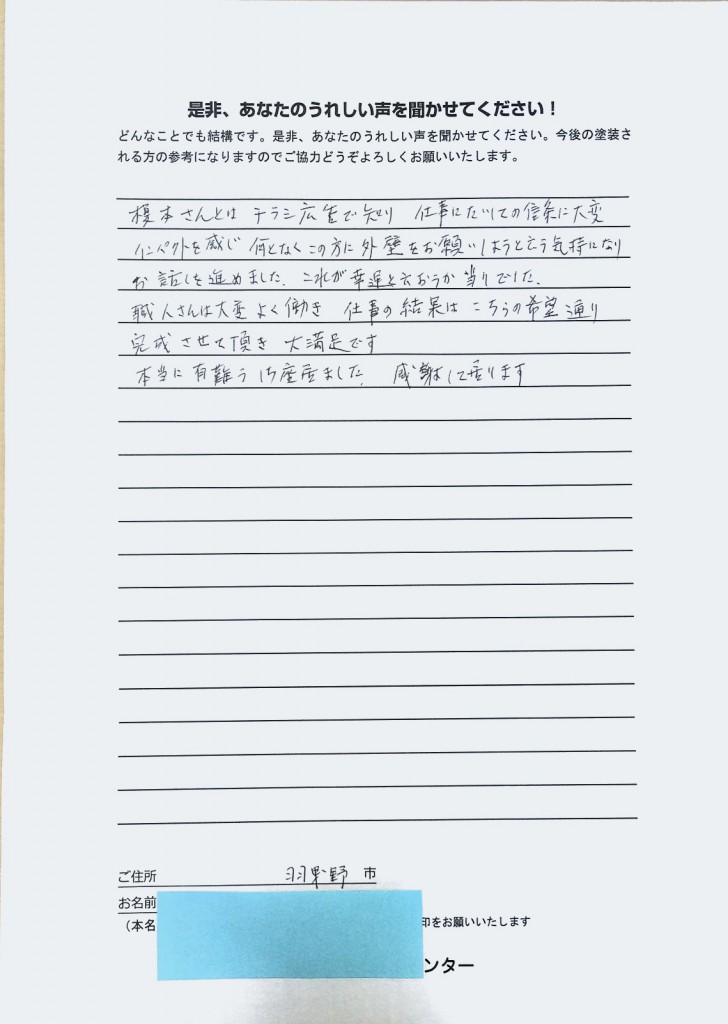 是非、あなたのうれしい声を聞かせてください！
どんなことでも結構です。是非、あなたのうれしい声を聞かせてください。今後の塗装さ
れる方の参考になりますのでご協力どうぞよろしくお願いいたします。
榎本さんとは チラシ広告で知り 仕事にたいしての信条に大変
インペクトを感じ 何となくこの方に外壁をお願いしようと云う気持になり
お話しを進めました。これが幸運と云おうか当りでした。
職人さんは大変よく働き 仕事の結果はこちらの希望通り
完成させて頂き 大満足です
本当に有難う御座居ました。 感謝して居ります
ご住所 羽曳野 市
お名前
（本名 印をお願いいたします
ンター